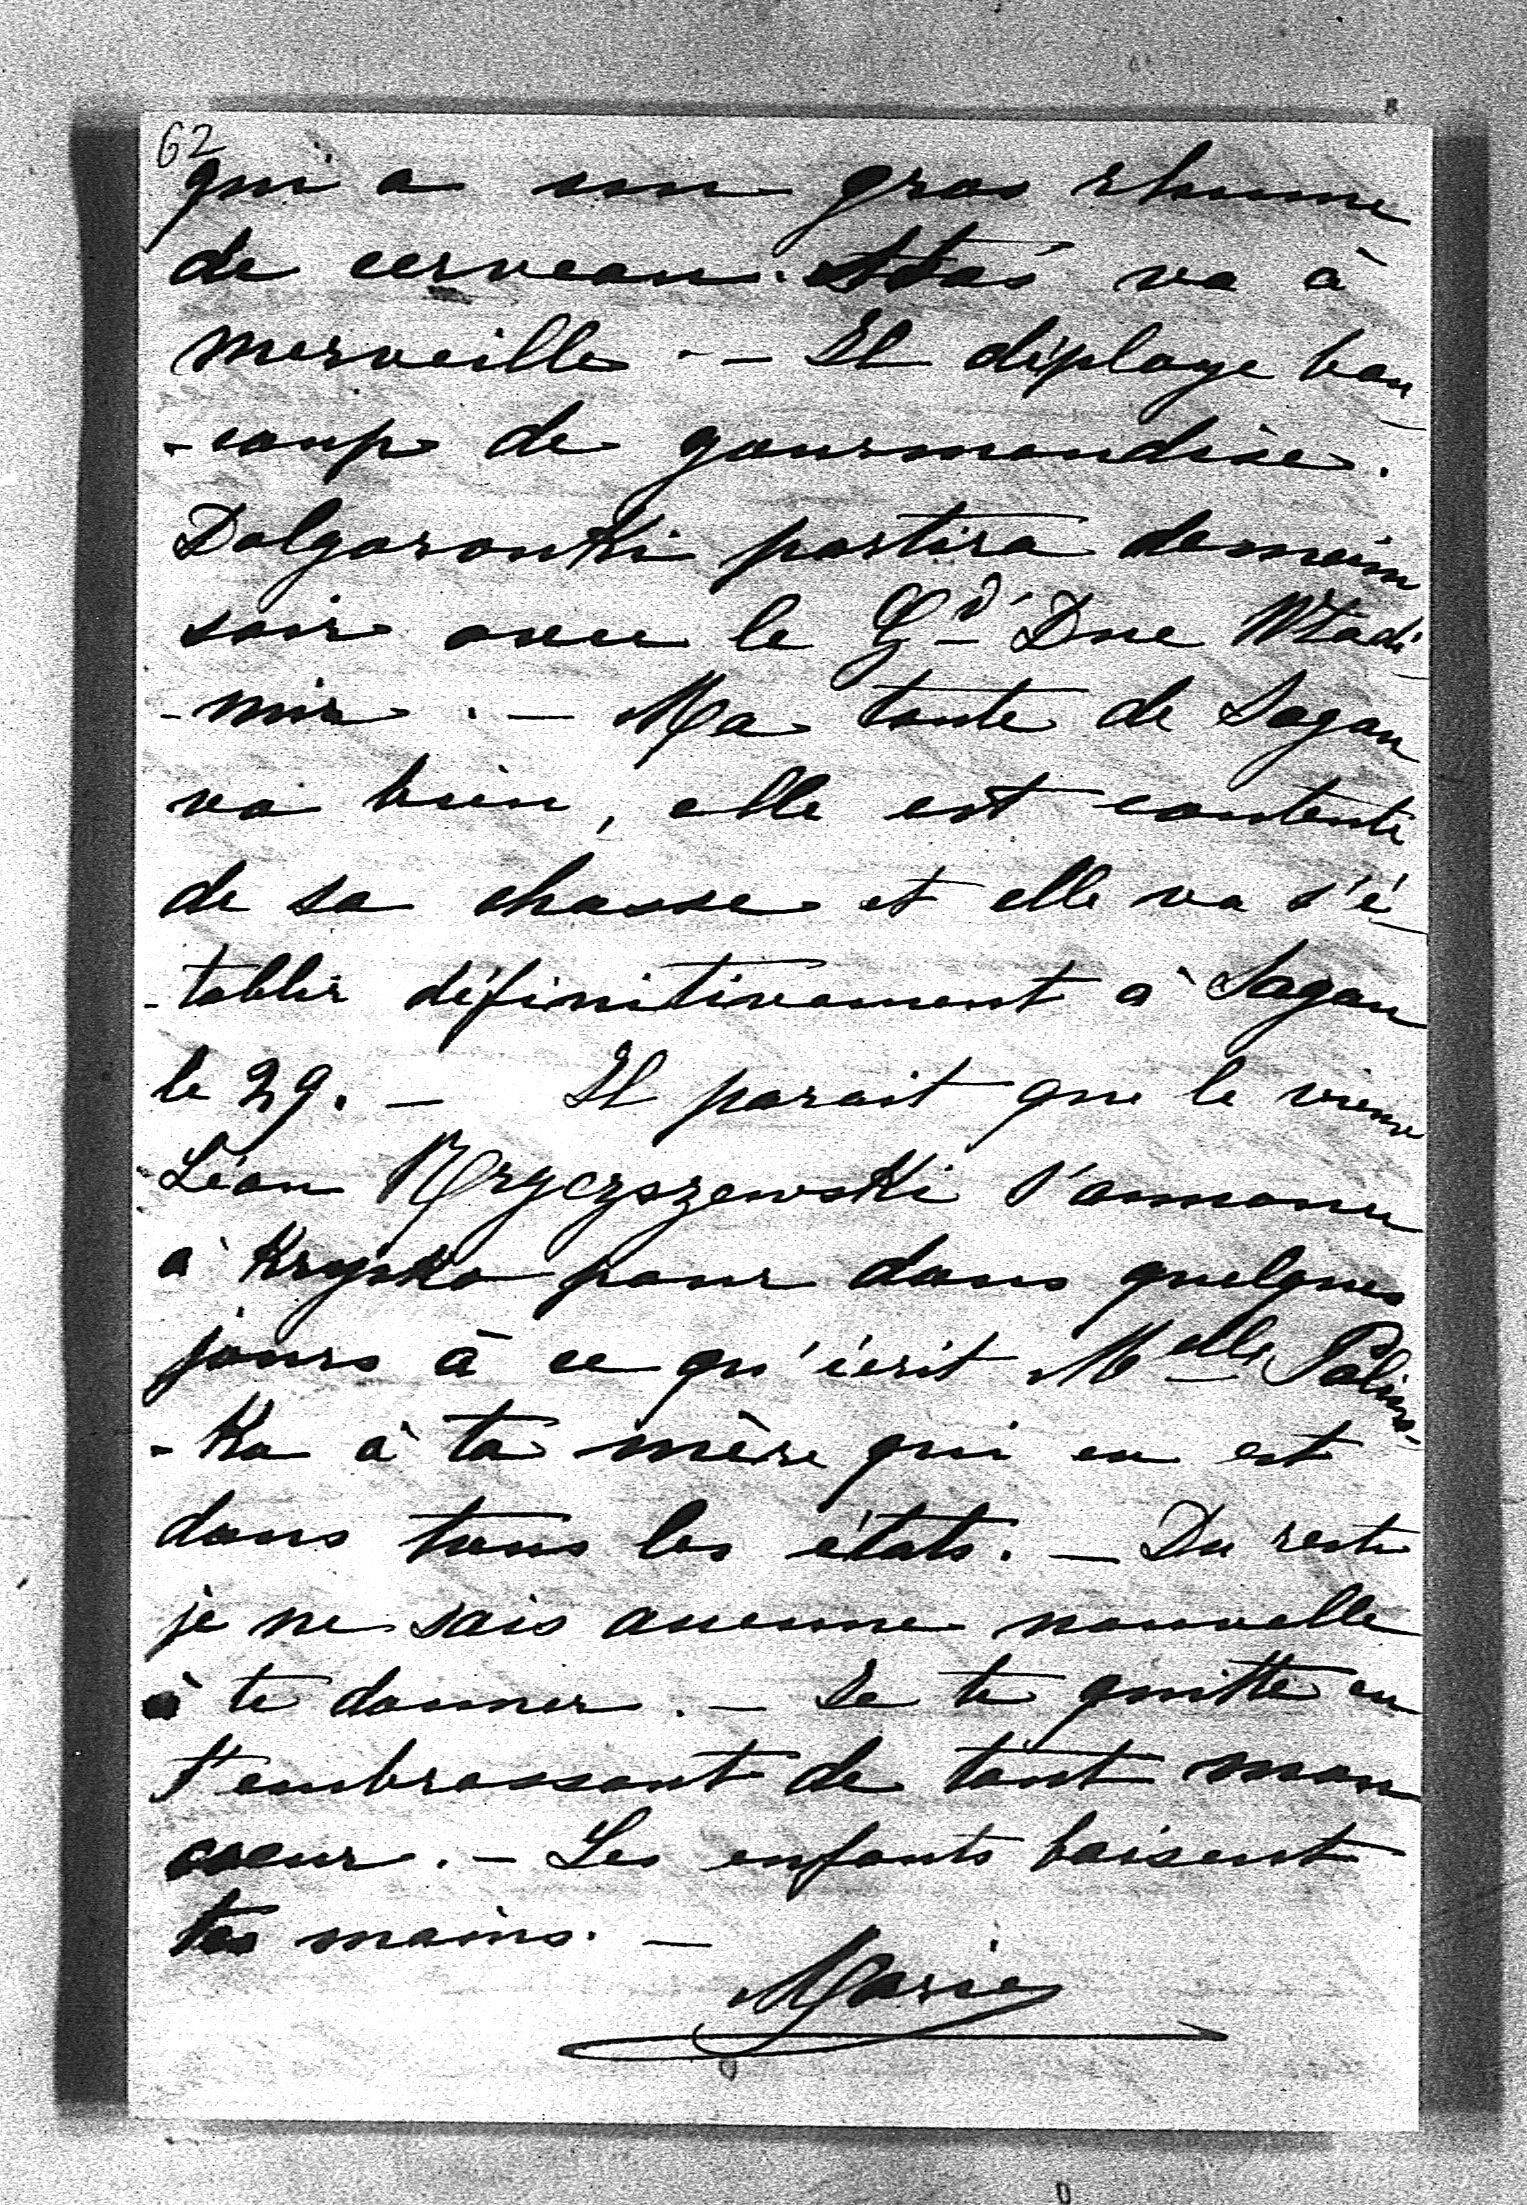 62
qui a un gros rhume
de cerveau. Staś va à
merveille. — Il déploye beau
-coup de gourmandise.
Dolgorouki partira demain
soir avec le Gd Duc Wladi
-mir. — Ma tante de Sagan
va bien, elle est contente
de sa chasse et elle va s'é
-tablir définitivement à Sagan
le 29. — Il parait que le vieux
Léon s'annonce
à pour dans quelques
jours à ce qu'écrit Melle Polins
-ka à ta mère qui en est
dans tous les états. — Du reste
je ne sais aucune nouvelle
à te donner. — Je te quitte en
t'embrassant de tout mon
coeur. — Les enfants baisent
tes mains. —
Marie